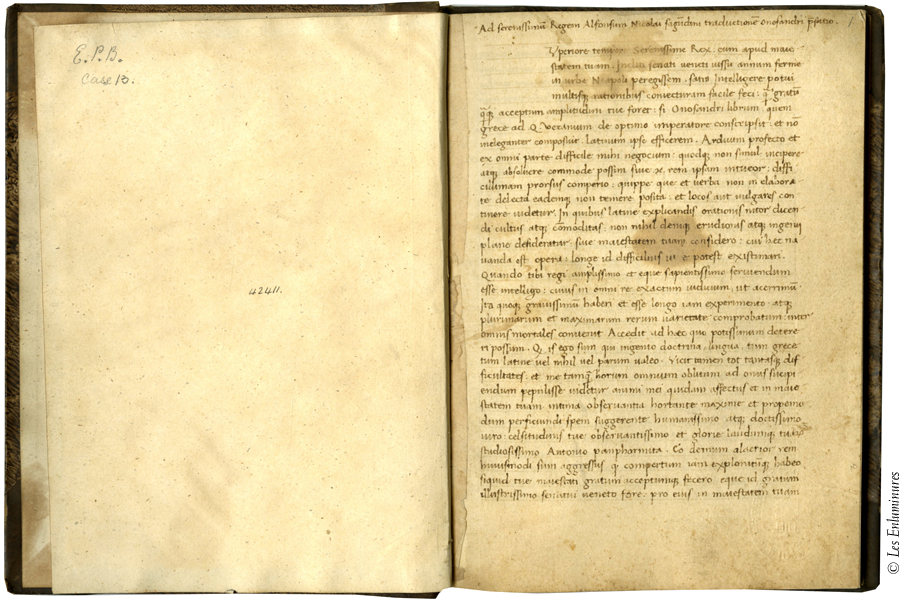 E.P.B.
Case 13.
42411.
Ad serenissimũ Regem Alfonsum Nicolai sagũdini traductionẽ Onosandri
periore tempore Serenissime Rex: cum apud maie
statem tuam. Incliti senati veneti iussu annum ferme
in urbe Neapoli peregissem. satis intelligere potui
multisq rationibus coniecturam facile feci: gratũ
acceptum amplitudini tue foret: si Onosandri librum: quem
grece ad Q. Veranium de optimo imperatore conscripsit: et nõ
ineleganter composuit: latinum ipse efficerem. Arduum profecto et
ex omni parte difficile mihi negocium: quodq non simul incipere
atq absoluere commode possim siue rem ipsam intueor: diffi
cillimam prorsus comperio: quippe que et verba non in elabora
te delecta eademq non temere posita: et locos aut vulgares con
tinere uidetur. In quibus latine explicandis orationis nitor dicen
di cultus atq cõmoditas: non nihil deniq eruditionis atq ingenij
plane desideratur. siue maiestatem tuam considero: cui hec na
uanda est opera: longe id difficilius existimari.
Quando tibi regi amplissimo et eque sapientissimo seruiendum
esse intelligo: cuius in omni re exactum iudicium, ut acerrimũ
Ita quoq grauissimũ haberi et esse longo iam experimento: atq
plurimarum et maximarum rerum varietate comprobatum: inter
omnis mortales conuenit. Accedit ad hec quo potissimum deterre
ri possum. Q is ego sum qui ingenio doctrina, lingua, tum grece
tum latine vel nihil vel parum valeo. Vicit tamen tot tantasq dif
ficultates: et me tamq horum omnium oblitum ad onus suscipi
endum pepulisse uidetur animi mei quidam affectus et in maie
statem tuam intima obseruantia hortante maxime et propemo
dum perficiundi spem suggerente humanissimo atq doctissimo
uiro: celsitudinis tue obseruantissimo et glorie laudumq tuarum
studiosissimo Antonio panphormita. Eo demum alacrior rem
huiusmodi sum aggressus q compertum iam exploratũq habeo
siquid tue maiestati gratum acceptumq fecero eque id gratum
illustrissimo senatui veneto fore: pro eius in maiestatem tuam
© Les Enluminures